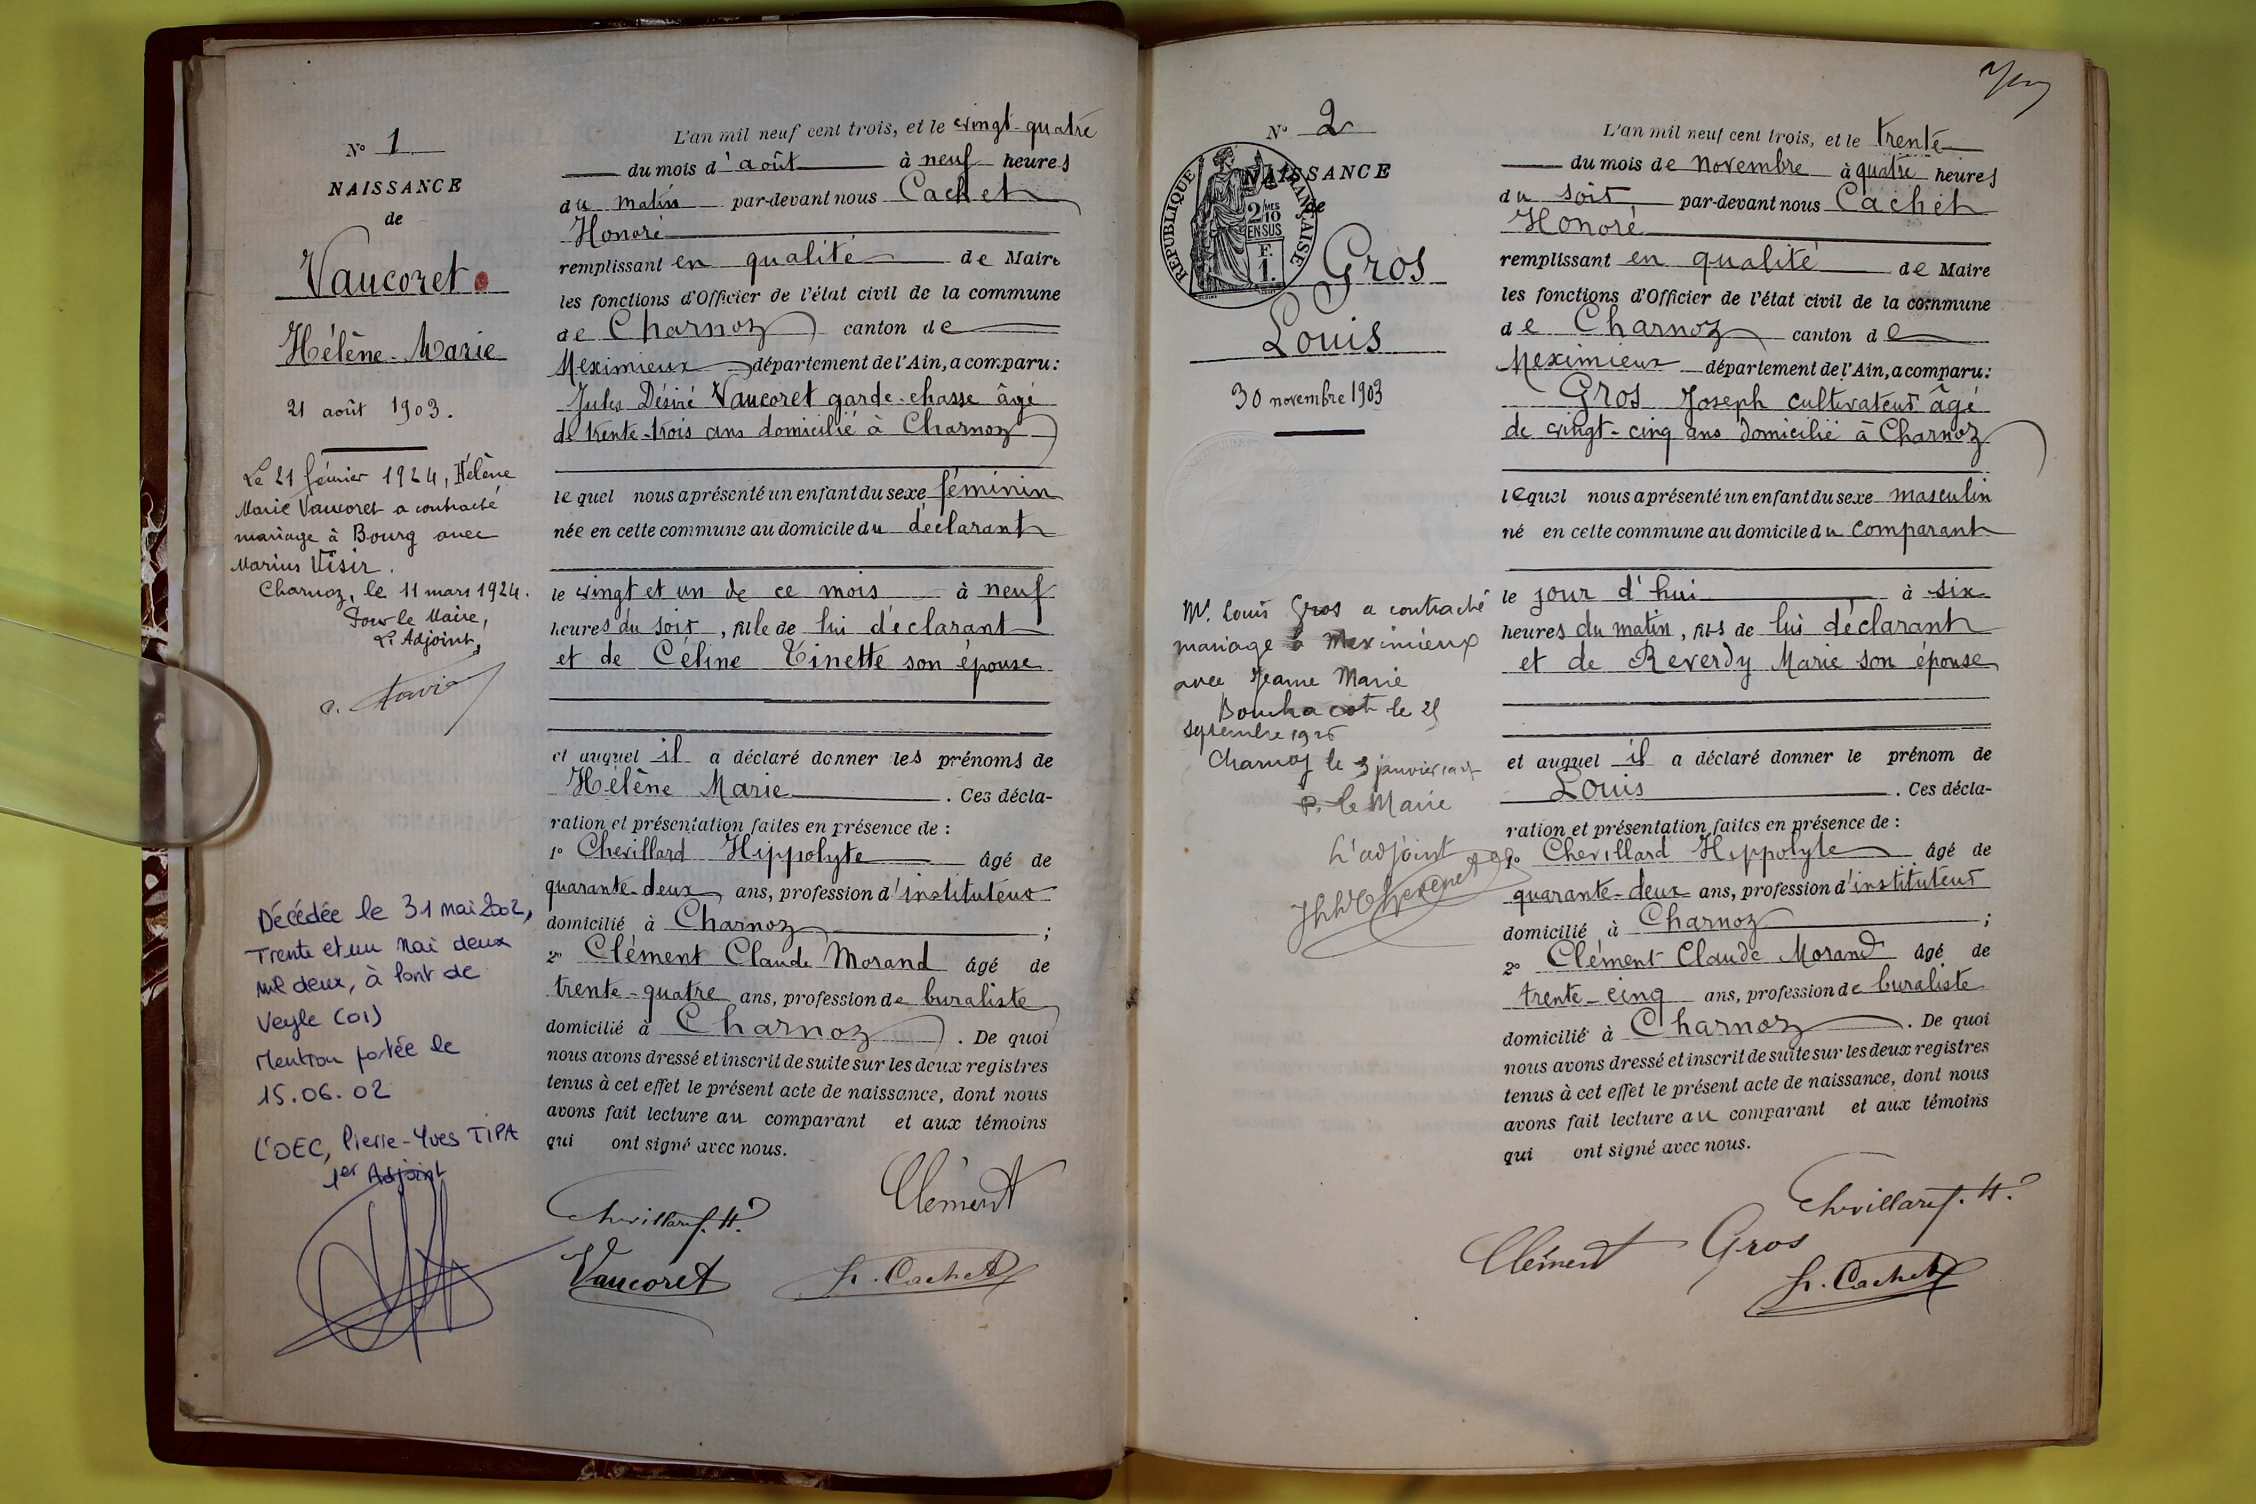 N° 1
NAISSANCE
de
Vaucoret
Hélène-Marie
21 août 1903.
Le 21 février 1924, Hélène
Marie Vaucoret a contracté
mariage à Bourg avec
Marius Visir.
Charnoz, le 11 mars 1924.
Pour le Maire,
L'Adjoint,
Décédée le 31 mai 2002,
Trente et un Mai deux
mil deux, à Pont de
Veyle (01)
Mention portée le
15.06.02
L'OEC, Pierre-Yves TIPA
1er Adjoint
L'an mil neuf cent trois, et le vingt-quatre
du mois d'août à neuf heures
du matin par-devant nous Cachet
Honoré
remplissant en qualité de Maire
les fonctions d'Officier de l'état civil de la commune
de Charnoz canton de
Meximieux département de l'Ain, a comparu:
Jules Désiré Vaucoret garde-chasse âgé
de trente-trois ans domicilié à Charnoz
lequel nous a présenté un enfant du sexe féminin
née en cette commune au domicile du déclarant
le vingt et un de ce mois à neuf
heures du soir, fille de lui déclarant
et de Céline Tinette son épouse
et auquel il a déclaré donner les prénoms de
Hélène Marie. Ces décla-
ration et présentation faites en présence de :
1° Chevillard Hippolyte âgé de
quarante-deux ans, profession d'instituteur
domicilié à Charnoz ;
2° Clément Claude Morand âgé de
trente-quatre ans, profession de buraliste
domicilié à Charnoz. De quoi
nous avons dressé et inscrit de suite sur les deux registres
tenus à cet effet le présent acte de naissance, dont nous
avons fait lecture au comparant et aux témoins
qui ont signé avec nous.
Clément
Chevillard. H.
Vaucoret
H. Cachet
N° 2
NAISSANCE
de
REPUBLIQUE FRANÇAISE
2/10MES
EN SUS
F.
1.
Gros
Louis
30 novembre 1903
Mr. Louis Gros a contracté
mariage à Meximieux
avec Jeanne Marie
le 25
septembre 1926
Charnoz le 3 janvier
P. le Maire
L'adjoint
L'an mil neuf cent trois, et le trente
du mois de novembre à quatre heures
du soir par-devant nous Cachet
Honoré
remplissant en qualité de Maire
les fonctions d'Officier de l'état civil de la commune
de Charnoz canton de
Meximieux département de l'Ain, a comparu:
Gros Joseph cultivateur âgé
de vingt-cinq ans domicilié à Charnoz
lequel nous a présenté un enfant du sexe masculin
né en cette commune au domicile du comparant
le jour d'hui à six
heures du matin, fils de lui déclarant
et de Reverdy Marie son épouse
et auquel il a déclaré donner le prénom de
Louis. Ces décla-
ration et présentation faites en présence de :
1° Chevillard Hippolyte âgé de
quarante-deux ans, profession d'instituteur
domicilié à Charnoz ;
2° Clément Claude Morand âgé de
trente-cinq ans, profession de buraliste
domicilié à Charnoz. De quoi
nous avons dressé et inscrit de suite sur les deux registres
tenus à cet effet le présent acte de naissance, dont nous
avons fait lecture au comparant et aux témoins
qui ont signé avec nous.
Chevillard. H.
Clément Gros
H. Cachet